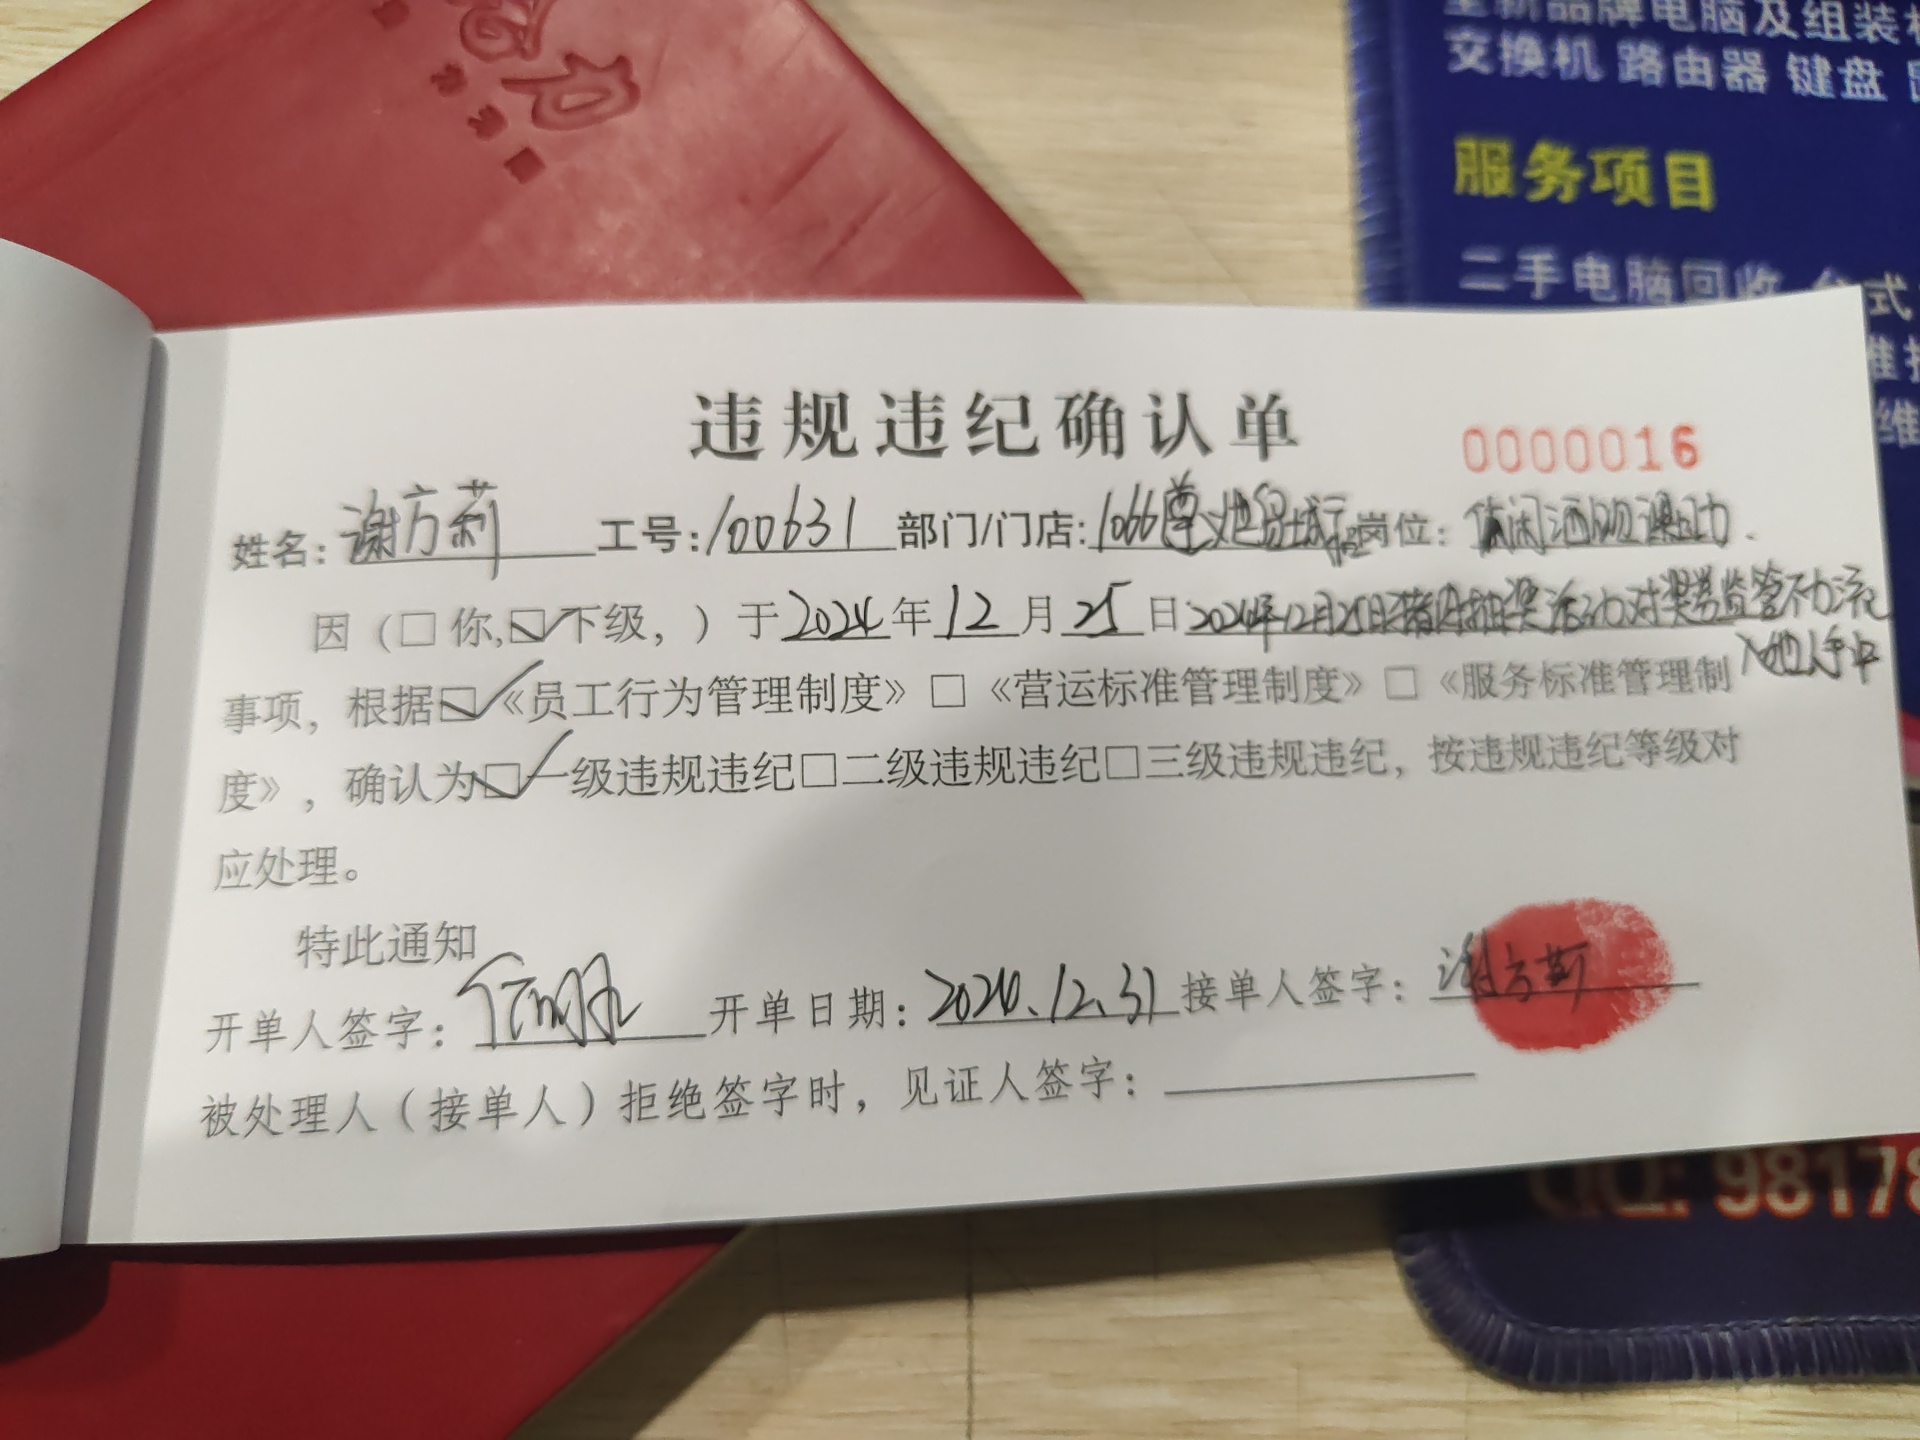 交换机 路由器 键盘
服务项目
二手电脑回收
违规违纪确认单
0000016
姓名: 谢方莉 工号: 100631 部门/门店: 1066 岗位: 休闲酒饮课助
因（□ 你,☑下级，）于2024年12月25日2024年12月25日 抽奖活动对奖券监管不力流
入他人手中
事项，根据☑《员工行为管理制度》□《营运标准管理制度》□《服务标准管理制
度》，确认为☑一级违规违纪□二级违规违纪□三级违规违纪，按违规违纪等级对
应处理。
特此通知
开单人签字: 开单日期: 2024.12.31 接单人签字: 谢方莉
被处理人（接单人）拒绝签字时，见证人签字:
QQ: 98178